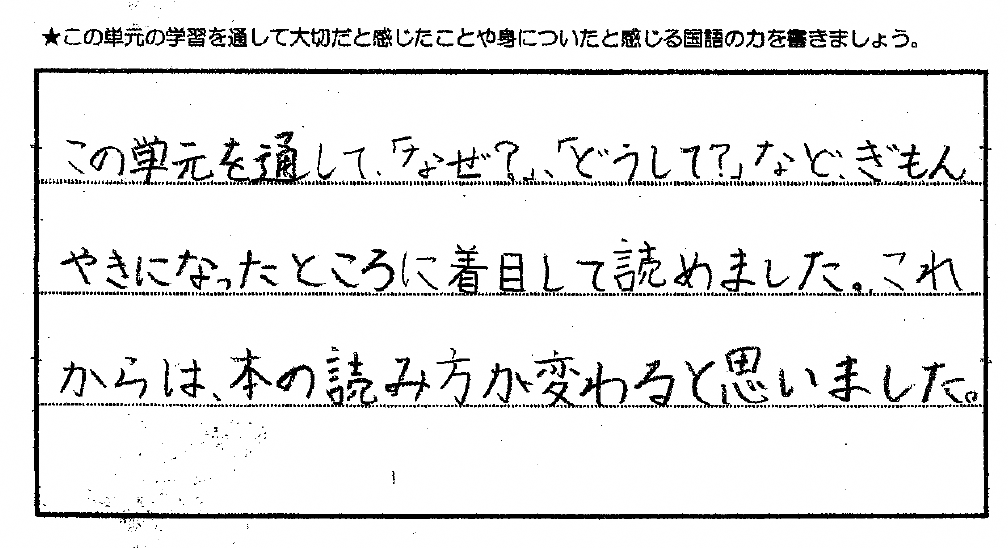 ★この単元の学習を通して大切だと感じたことや身についたと感じる国語の力を書きましょう。
この単元を通して、「なぜ?」、「どうして?」など、ぎもん
やきになったところに着目して読めました。これ
からは、本の読み方が変わると思いました。